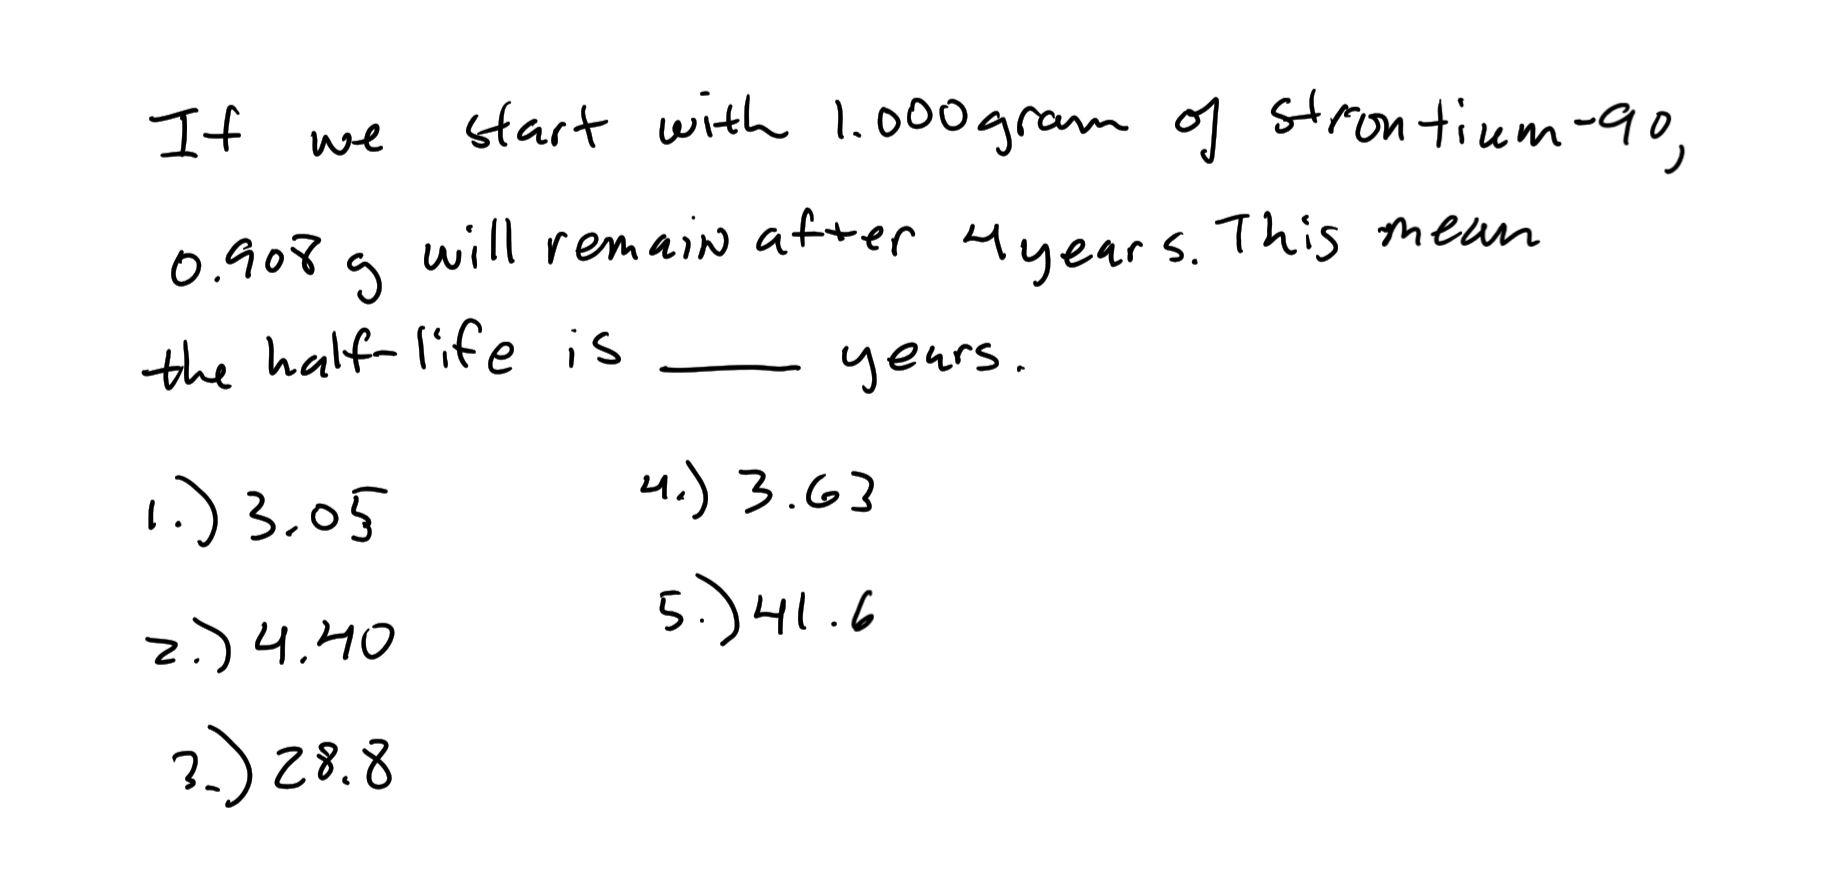 If we start with 1.000gram of strontium-90,
0.908 g will remain after 4 years. This mean
the half-life is ____ years.
1.) 3.05
2.) 4.40
3.) 28.8
4.) 3.63
5.) 41.6